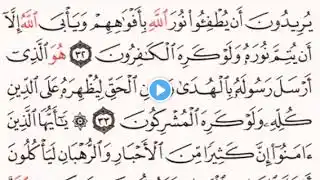 يُرِيدُونَ أَن يُطْفِـُٔوا۟ نُورَ ٱللَّهِ بِأَفْوَٰهِهِمْ وَيَأْبَى ٱللَّهُ إِلَّآ
أَن يُتِمَّ نُورَهُۥ وَلَوْ كَرِهَ ٱلْكَٰفِرُونَ ٣٢ هُوَ ٱلَّذِىٓ
أَرْسَلَ رَسُولَهُۥ بِٱلْهُدَىٰ وَدِينِ ٱلْحَقِّ لِيُظْهِرَهُۥ عَلَى ٱلدِّينِ
كُلِّهِۦ وَلَوْ كَرِهَ ٱلْمُشْرِكُونَ ٣٣ ۞ يَٰٓأَيُّهَا ٱلَّذِينَ
ءَامَنُوٓا۟ إِنَّ كَثِيرًا مِّنَ ٱلْأَحْبَارِ وَٱلرُّهْبَانِ لَيَأْكُلُونَ